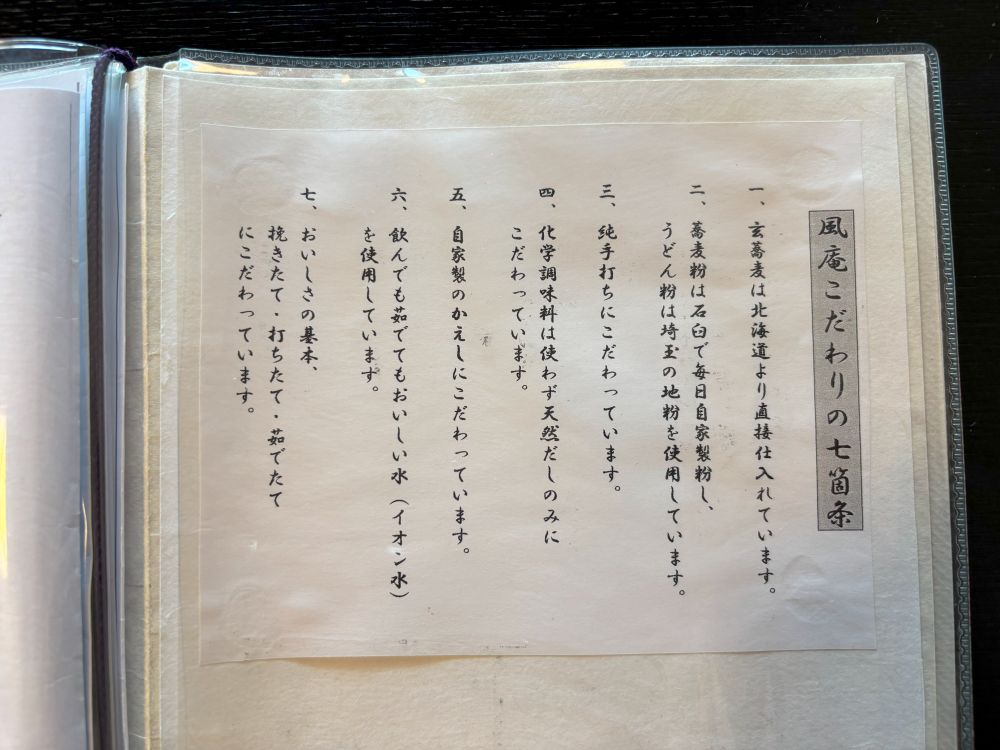 風庵こだわりの七箇条
一、玄蕎麦は北海道より直接仕入れています。
二、蕎麦粉は石臼で毎日自家製粉し、
うどん粉は埼玉の地粉を使用しています。
三、純手打ちにこだわっています。
四、化学調味料は使わず天然だしのみに
こだわっています。
五、自家製のかえしにこだわっています。
六、飲んでも茹でてもおいしい水（イオン水）
を使用しています。
七、おいしさの基本、
挽きたて・打ちたて・茹でたて
にこだわっています。